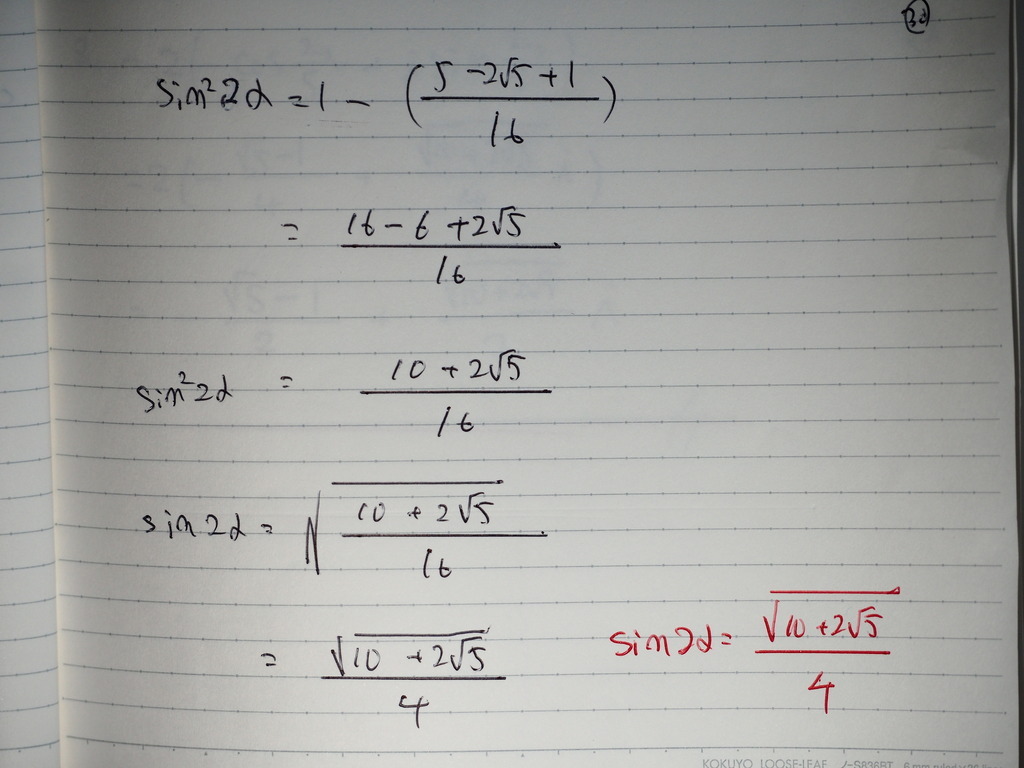 sin²2α = 1 − ( (5 − 2√5 + 1) / 16 )
= (16 − 6 + 2√5) / 16
sin²2α = (10 + 2√5) / 16
sin2α = √( (10 + 2√5) / 16 )
= √(10 + 2√5) / 4
sin2α = √(10 + 2√5) / 4
KOKUYO LOOSE-LEAF ノ-S836BT 6 mm ruled